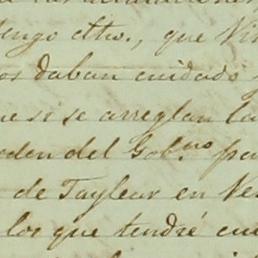 engo dho., que Vi
os daban cuidado
ne si se arreglan la
orden del Gobno. pa
de Tayleur en Ve
los que tendré cui